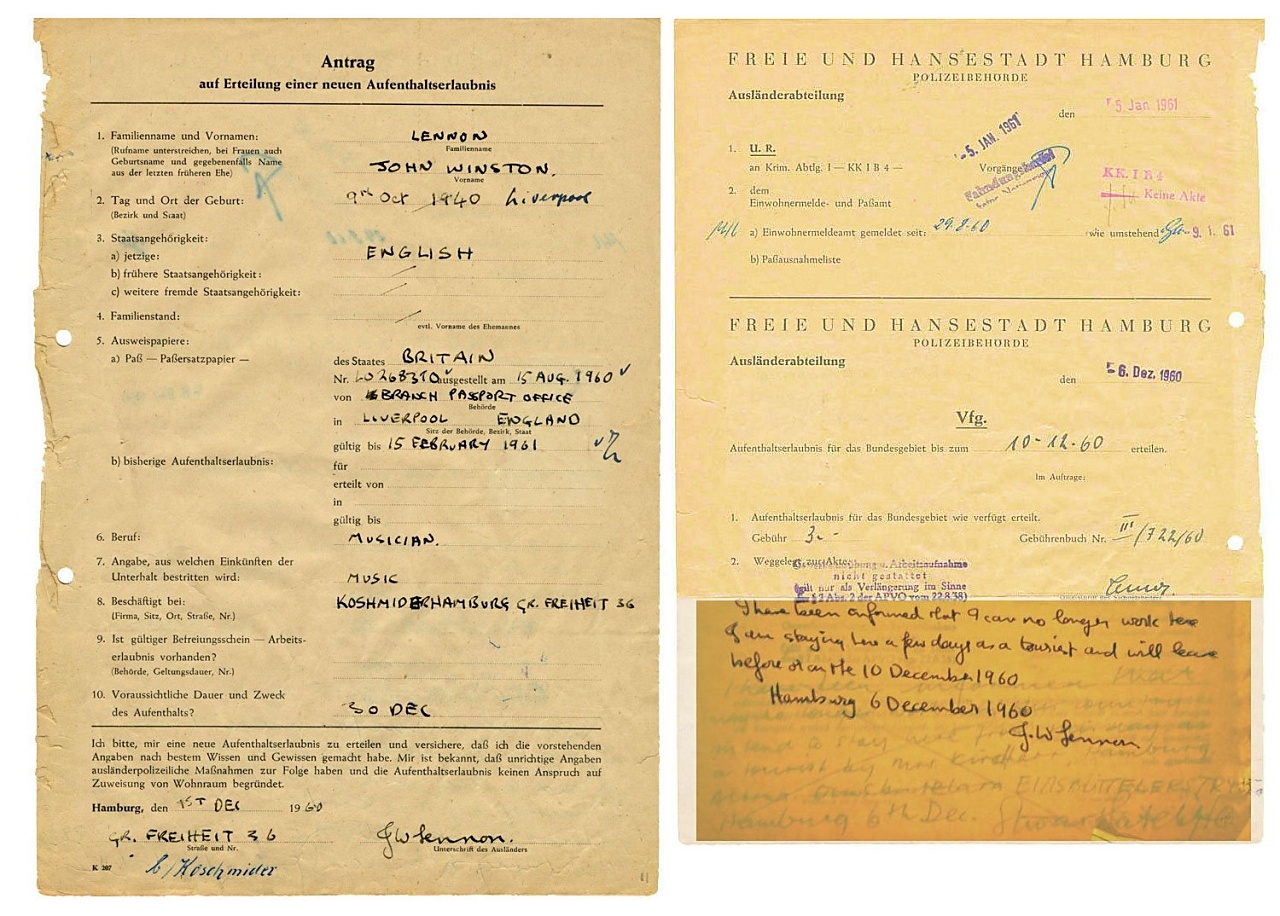 Antrag
auf Erteilung einer neuen Aufenthaltserlaubnis
1. Familienname und Vornamen: LENNON
(Rufname unterstreichen, bei Frauen auch Familienname
Geburtsname und gegebenenfalls Name JOHN WINSTON.
aus der letzten früheren Ehe) Vorname
2. Tag und Ort der Geburt: 9th Oct 1940 Liverpool
(Bezirk und Staat)
3. Staatsangehörigkeit:
a) jetzige: ENGLISH
b) frühere Staatsangehörigkeit:
c) weitere fremde Staatsangehörigkeit:
4. Familienstand:
evtl. Vorname des Ehemannes
5. Ausweispapiere:
a) Paß — Paßersatzpapier — des Staates BRITAIN
Nr. LO268370 ausgestellt am 15 AUG. 1960
von BRANCH PASSPORT OFFICE
Behörde
in LIVERPOOL ENGLAND
Sitz der Behörde, Bezirk, Staat
gültig bis 15 FEBRUARY 1961
b) bisherige Aufenthaltserlaubnis: für
erteilt von
in
gültig bis
6. Beruf: MUSICIAN.
7. Angabe, aus welchen Einkünften der
Unterhalt bestritten wird: MUSIC
8. Beschäftigt bei: KOSHMIDER HAMBURG GR. FREIHEIT 36
(Firma, Sitz, Ort, Straße, Nr.)
9. Ist gültiger Befreiungsschein — Arbeits-
erlaubnis vorhanden?
(Behörde, Geltungsdauer, Nr.)
10. Voraussichtliche Dauer und Zweck
des Aufenthalts? 30 DEC
Ich bitte, mir eine neue Aufenthaltserlaubnis zu erteilen und versichere, daß ich die vorstehenden
Angaben nach bestem Wissen und Gewissen gemacht habe. Mir ist bekannt, daß unrichtige Angaben
ausländerpolizeiliche Maßnahmen zur Folge haben und die Aufenthaltserlaubnis keinen Anspruch auf
Zuweisung von Wohnraum begründet.
Hamburg, den 1ST DEC 1960
GR. FREIHEIT 36 JW Lennon.
Straße und Nr. Unterschrift des Ausländers
K 207 b/Koschmider
FREIE UND HANSESTADT HAMBURG
POLIZEIBEHÖRDE
Ausländerabteilung
den 5. Jan. 1961
-5. JAN. 1961
1. U. R.
an Krim. Abtlg. I — KK I B 4 — Vorgänge
KK. I B 4
Keine Akte
2. dem
Einwohnermelde- und Paßamt
a) Einwohnermeldeamt gemeldet seit: 29.8.60 wie umstehend 9. 1. 61
b) Paßausnahmeliste
FREIE UND HANSESTADT HAMBURG
POLIZEIBEHÖRDE
Ausländerabteilung
den 6. Dez. 1960
Vfg.
Aufenthaltserlaubnis für das Bundesgebiet bis zum 10-12-60 erteilen.
Im Auftrage:
1. Aufenthaltserlaubnis für das Bundesgebiet wie verfügt erteilt.
Gebühr 3.- Gebührenbuch Nr. III/722/60
2. Weggelegt zur Akte:
u. Arbeitsaufnahme
nicht gestattet
(gilt nur als Verlängerung im Sinne
§ 2 Abs. 2 der APVO vom 22.8.38)
I have been informed that I can no longer work here
I am staying here a few days as a tourist and will leave
before or on the 10 December 1960
Hamburg 6 December 1960
J. W Lennon
Hamburg 6th Dec.